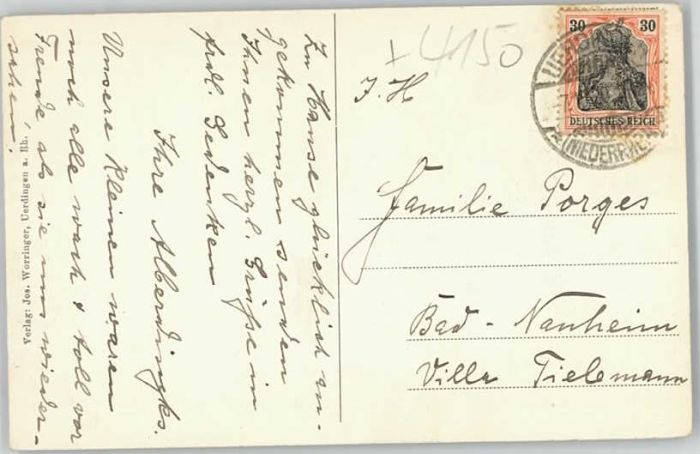 Zu Hause glücklich an-
gekommen senden
Ihnen herzl. Grüße in
frdl. Gedenken
Ihre Alberdingks.
Unsere Kleinen waren
noch alle wach & toll vor
Freude als sie uns wieder-
sahen.
Verlag: Jos. Worringer, Uerdingen a. Rh.
+4150
30 30
DEUTSCHES REICH
(NIEDERRHEIN)
Familie Porges
Bad-Nauheim
Villa Tielemann